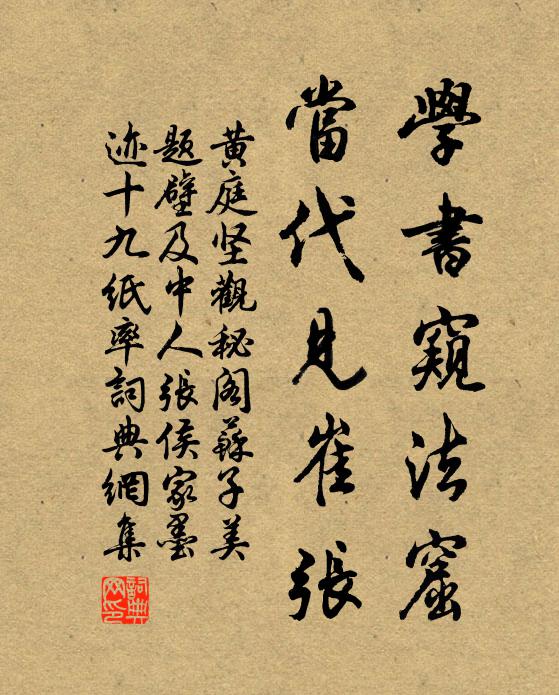 學書窺法窟
當代見崔張
黄庭坚觀秘阁蘇子美
题壁及中人張侯家墨
迹十九紙率詞典網集
詞典
网印